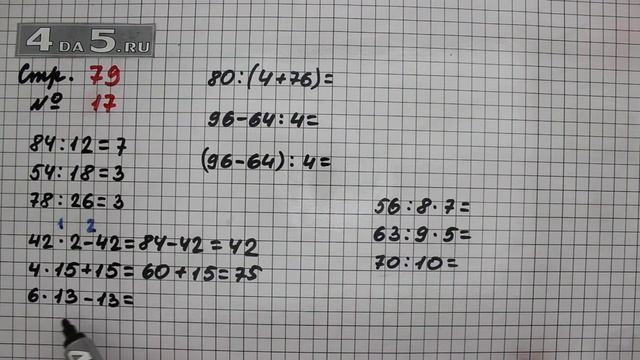 4DA5.RU
Стр. 79
№ 17
84:12=7
54:18=3
78:26=3
1 2
42·2-42=84-42=42
4·15+15=60+15=75
6·13-13=
80:(4+76)=
96-64:4=
(96-64):4=
56:8·7=
63:9·5=
70:10=